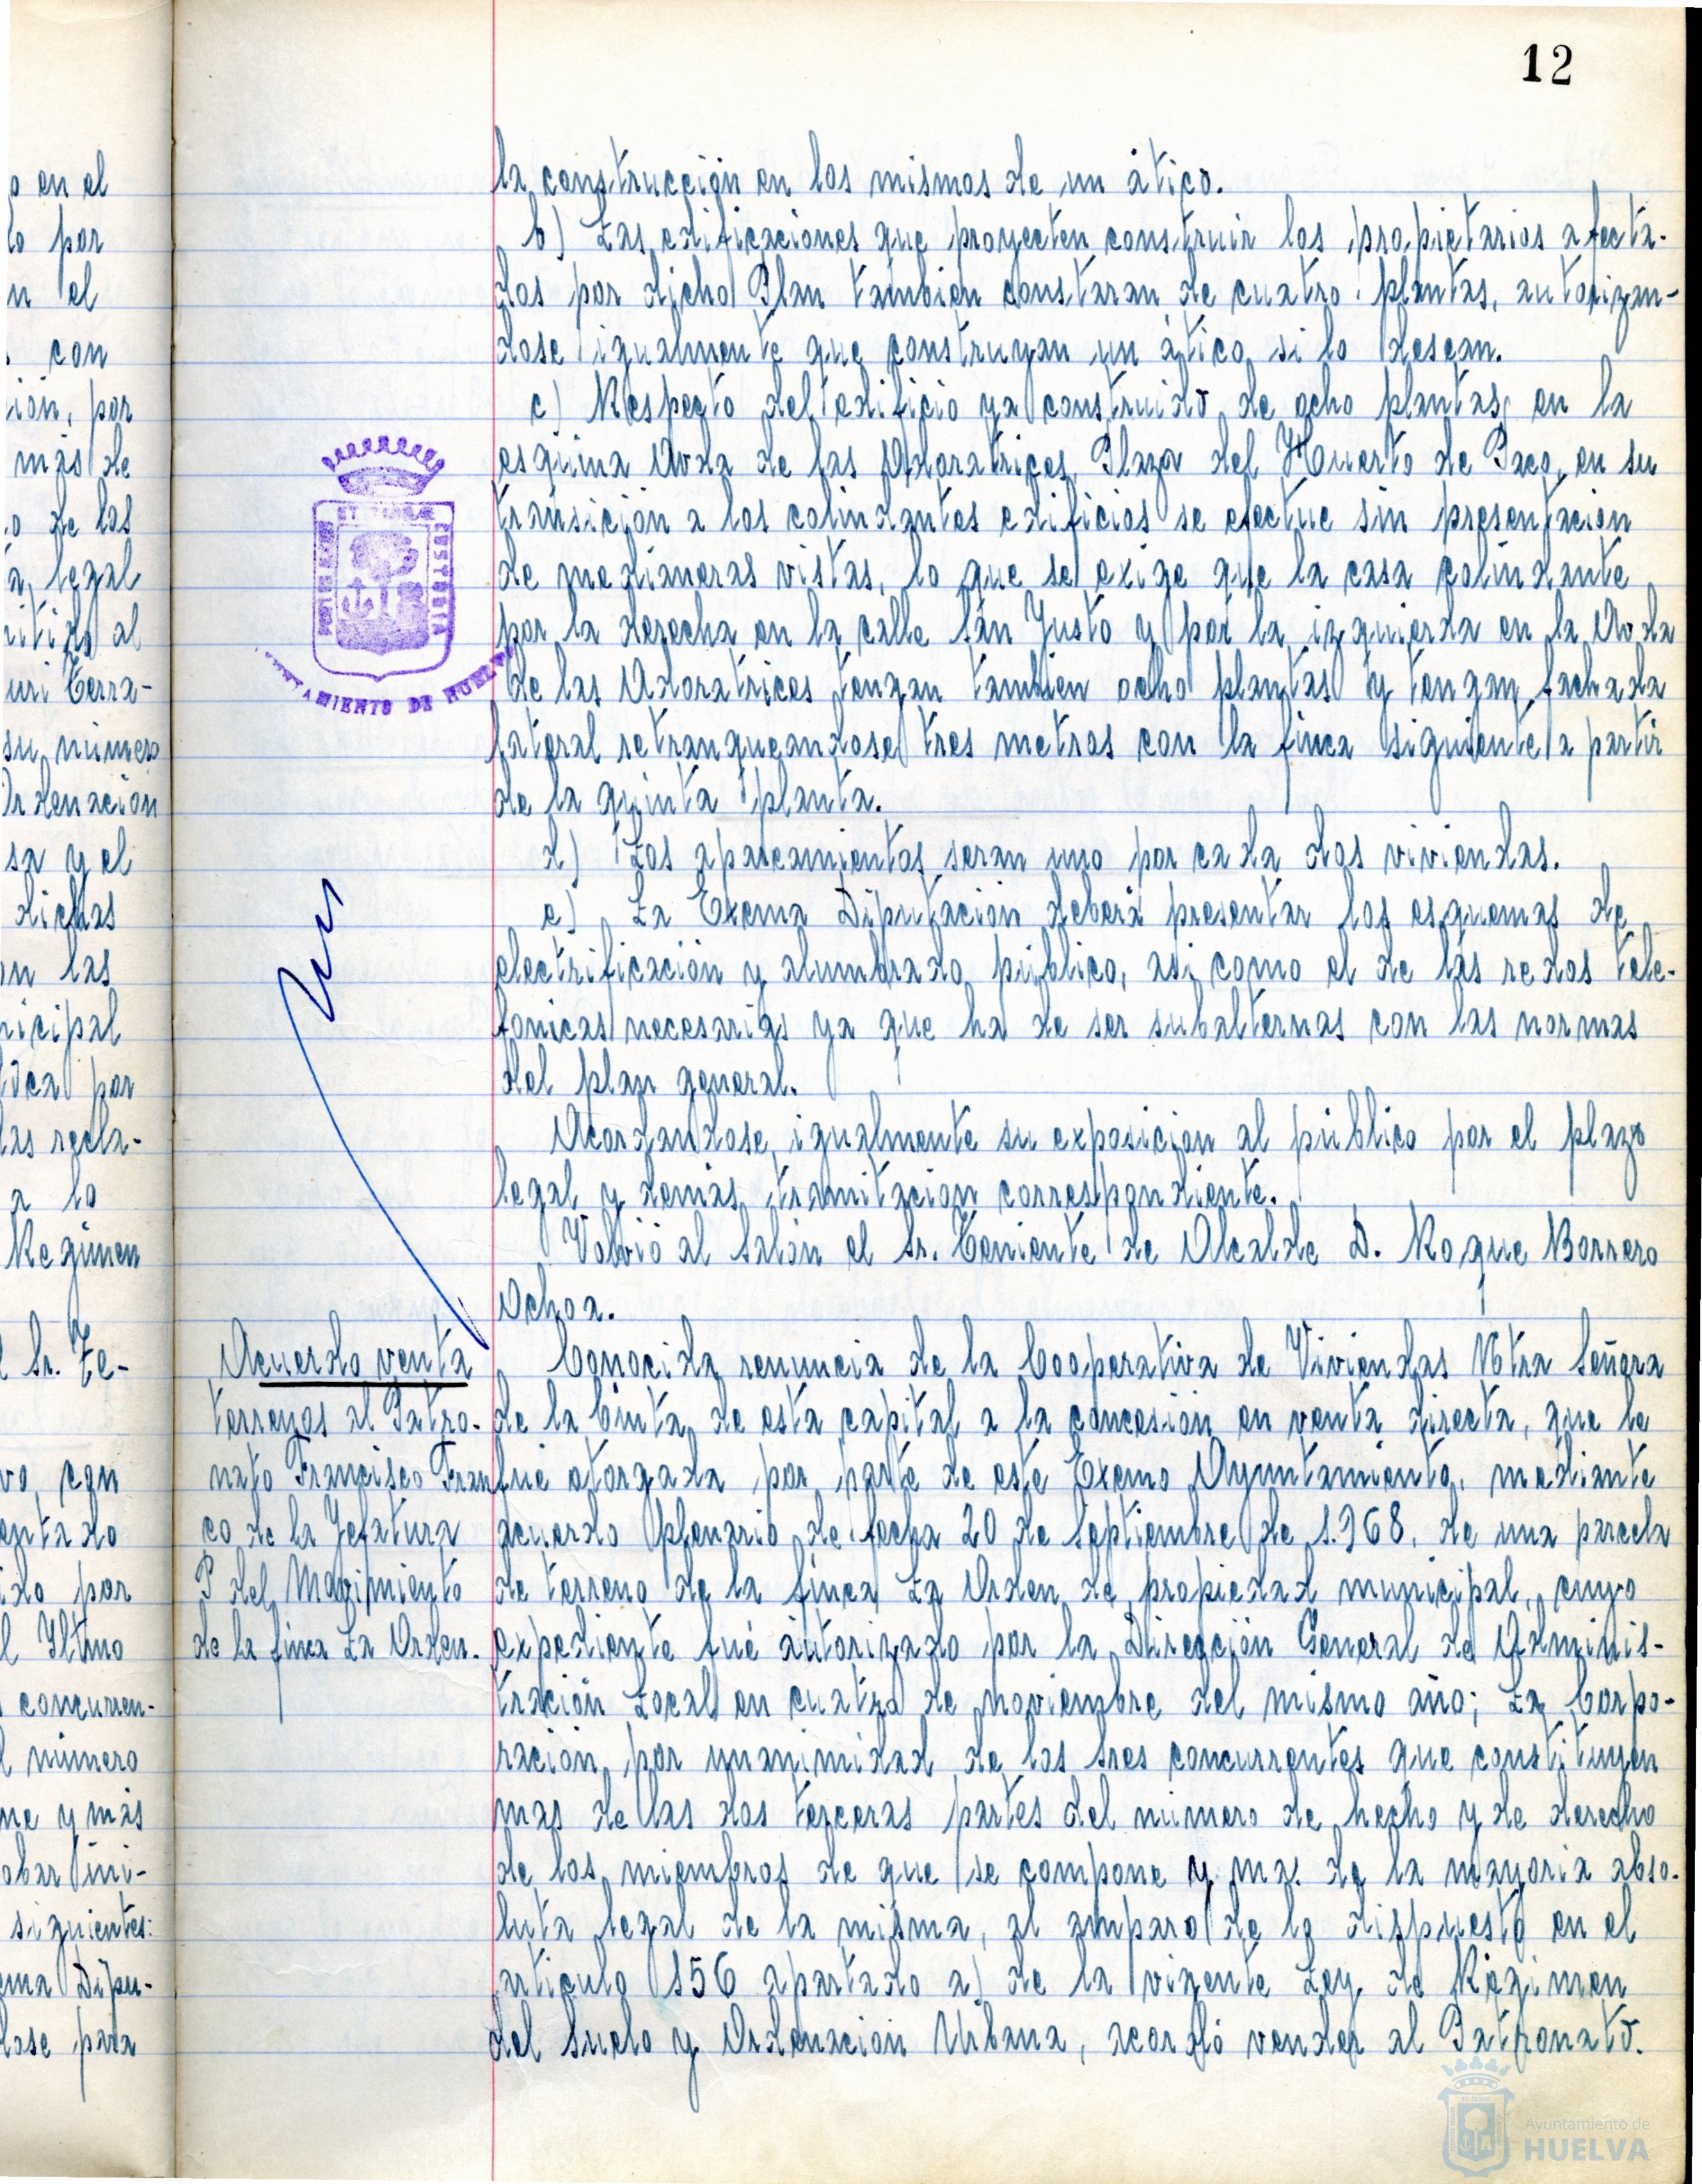 12
la construcción en los mismos de un ático.
b) Las edificaciones que proyecten construir los propietarios afecta-
dos por dicho Plan tambien constaran de cuatro plantas, autorizan-
dose igualmente que construyan un ático si lo desean.
c) Respecto del edificio ya construido de ocho plantas en la
esquina Avda de las Adoratrices Plaza del Huerto de Paco, en su
transición a los colindantes edificios se efectue sin presentacion
de medianeras vistas, lo que se exige que la casa colindante
por la derecha en la calle San Justo y por la izquierda en la Avda
de las Adoratrices tengan tambien ocho plantas y tengan fachada
lateral retranqueandose tres metros con la finca siguiente a partir
de la quinta planta.
d) Los aparcamientos seran uno por cada dos viviendas.
e) La Excma Diputación deberá presentar los esquemas de
electrificación y alumbrado público, asi como el de las redes tele-
fonicas necesarias ya que ha de ser subalternas con las normas
del plan general.
Acordandose igualmente su exposicion al público por el plazo
legal y demás tramitacion correspondiente.
Volvió al Salón el Sr. Teniente de Alcalde D. Roque Borrero
Ochoa.
Acuerdo venta
terrenos al Patro-
nato Francisco Fran
co de la Jefatura
P del Movimiento
de la finca La Orden.
Conocida renuncia de la Cooperativa de Viviendas Ntra Señora
de la Cinta de esta capital a la concesión en venta directa, que le
fué otorgada por parte de este Excmo Ayuntamiento, mediante
acuerdo plenario de fecha 20 de Septiembre de 1.968, de una parcela
de terreno de la finca La Orden de propiedad municipal, cuyo
expediente fué autorizado por la Dirección General de Adminis-
tración Local en cuatro de noviembre del mismo año; La Corpo-
ración por unanimidad de los Sres concurrentes que constituyen
mas de las dos terceras partes del número de hecho y de derecho
de los miembros de que se compone y mas de la mayoria abso-
luta legal de la misma, al amparo de lo dispuesto en el
articulo 156 apartado a) de la vigente Ley de Régimen
del Suelo y Ordenación Urbana, acordó vender al Patronato.
AYUNTAMIENTO DE HUELVA
o en el
lo por
n el
con
ión, por
más de
o de los
a legal
mitido al
uri Terra-
su número
Ordenación
sa y el
dichas
on las
nicipal
por
las recla-
a lo
Regimen
l Sr. Te-
vo, con
entado
ido por
l Iltmo
concurren-
l número
ne y más
obar ini-
siguientes:
ema Dipu-
dose para
Ayuntamiento de
HUELVA